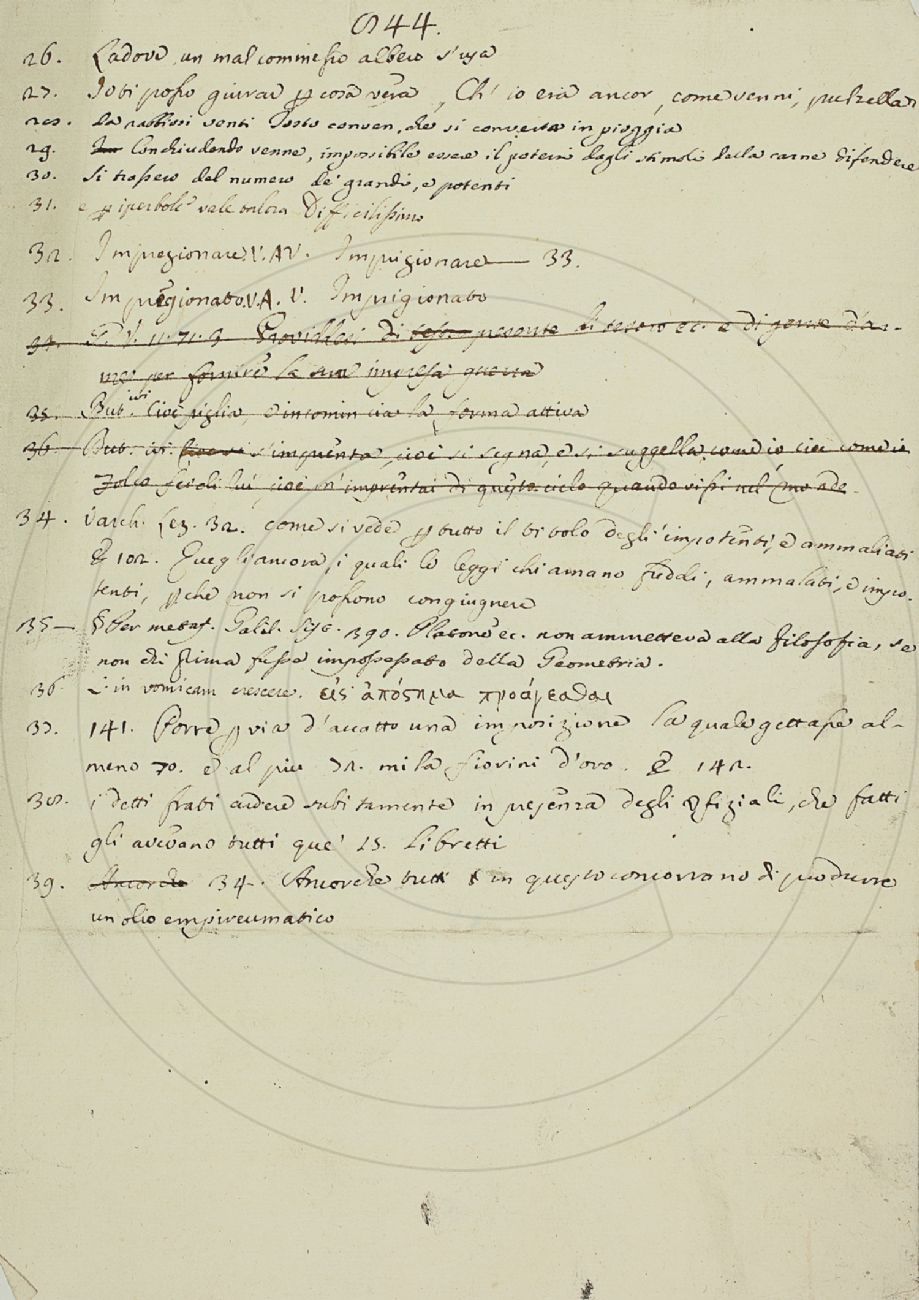 944.
26. Ladove un mal commesso albero s'usa
27. Io ti posso giurar p cosa vera, Ch' io era ancor, come venni, pulzella
28. da rabbiosi venti tosto conven, che si converta in pioggia
29. Conchiudendo venne, impossibile essere il potersi dagli stimoli della carne difendere
30. Si trassero del numero de' grandi, e potenti
31. e p iperbole vale talora Difficilissimo
32. Impregionare V. A V. Imprigionare — 33.
33. Impregionato V. A. V. Imprigionato
34. G. V. 11. 71. 3. Provideesi di pecunia di tesoro ec. e di gente d'ar-
me per fornire la sua impresa guerra
35. But. ivi Cioè figlia, e incomincia la forma attiva
36. But. ivi s'imprenta, cioè si segna, e si suggella, com'io cioè come io
Folco fei di lui cioè m'imprentai di questo cielo quando vissi nel mondo.
34. Varch. Lez. 32. come si vede p tutto il titolo degl' impotenti, e ammaliati
E 102. Quegli ancora, i quali le leggi chiamano freddi, ammalati, e impo-
tenti, pchè non si possono congiugnere
35 — § Per metaf. Galil. Sist. 390. Platone ec. non ammetteva alla filosofia, se
non chi prima fusse impossessato della Geometria.
36. L. in vomicam crescere. εἰς ἀπόστημα προάγεσθαι
37. 141. Porre p via d'accatto una imposizione la quale gettasse al-
meno 70. e al piu 72. mila fiorini d'oro. E 142.
38. i detti frati ardere subitamente in presenza degli Ofiziali, che fatti
gli avevano tutti que' 25. Libretti
39. Ancorchè 34. Ancorchè tutti in questo concorrano di produrre
un olio empireumatico